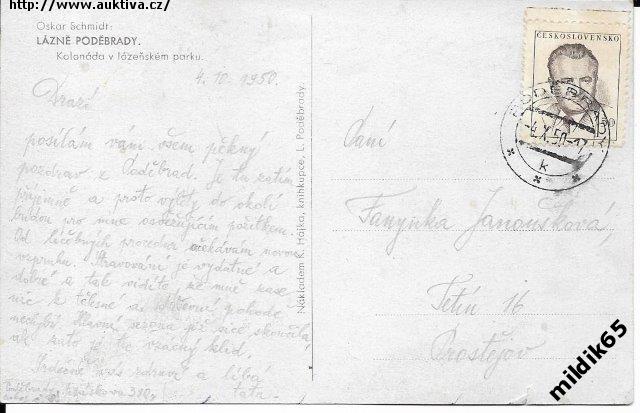 http://www.auktiva.cz/
Oskar Schmidt:
LÁZNĚ PODĚBRADY.
Kolonáda v lázeňském parku.
4. 10. 1950.
Drazí
posílám vám všem pěkný
pozdrav z Poděbrad. Je tu zatím
příjemně a proto výlety do okolí
budou pro mne osvěžujícím požitkem.
Od léčebných procedur očekávám novou
vzpruhu. Stravování je vydatné a
dobré a tak vidíte, že mně zase
nic k tělesné a duševní pohodě
nechybí. Hlavní sezona již sice skončila,
ale zato je tu vzácný klid.
Srdečně vás zdraví a líbá
táta.
Poděbrady
Nákladem K. Hájka, knihkupce, L. Poděbrady.
ČESKOSLOVENSKO
PODĚBRADY
-4.X.50-17
k
Paní
Fanynka Janoušková,
Tetín 16
Prostějov
mildik65